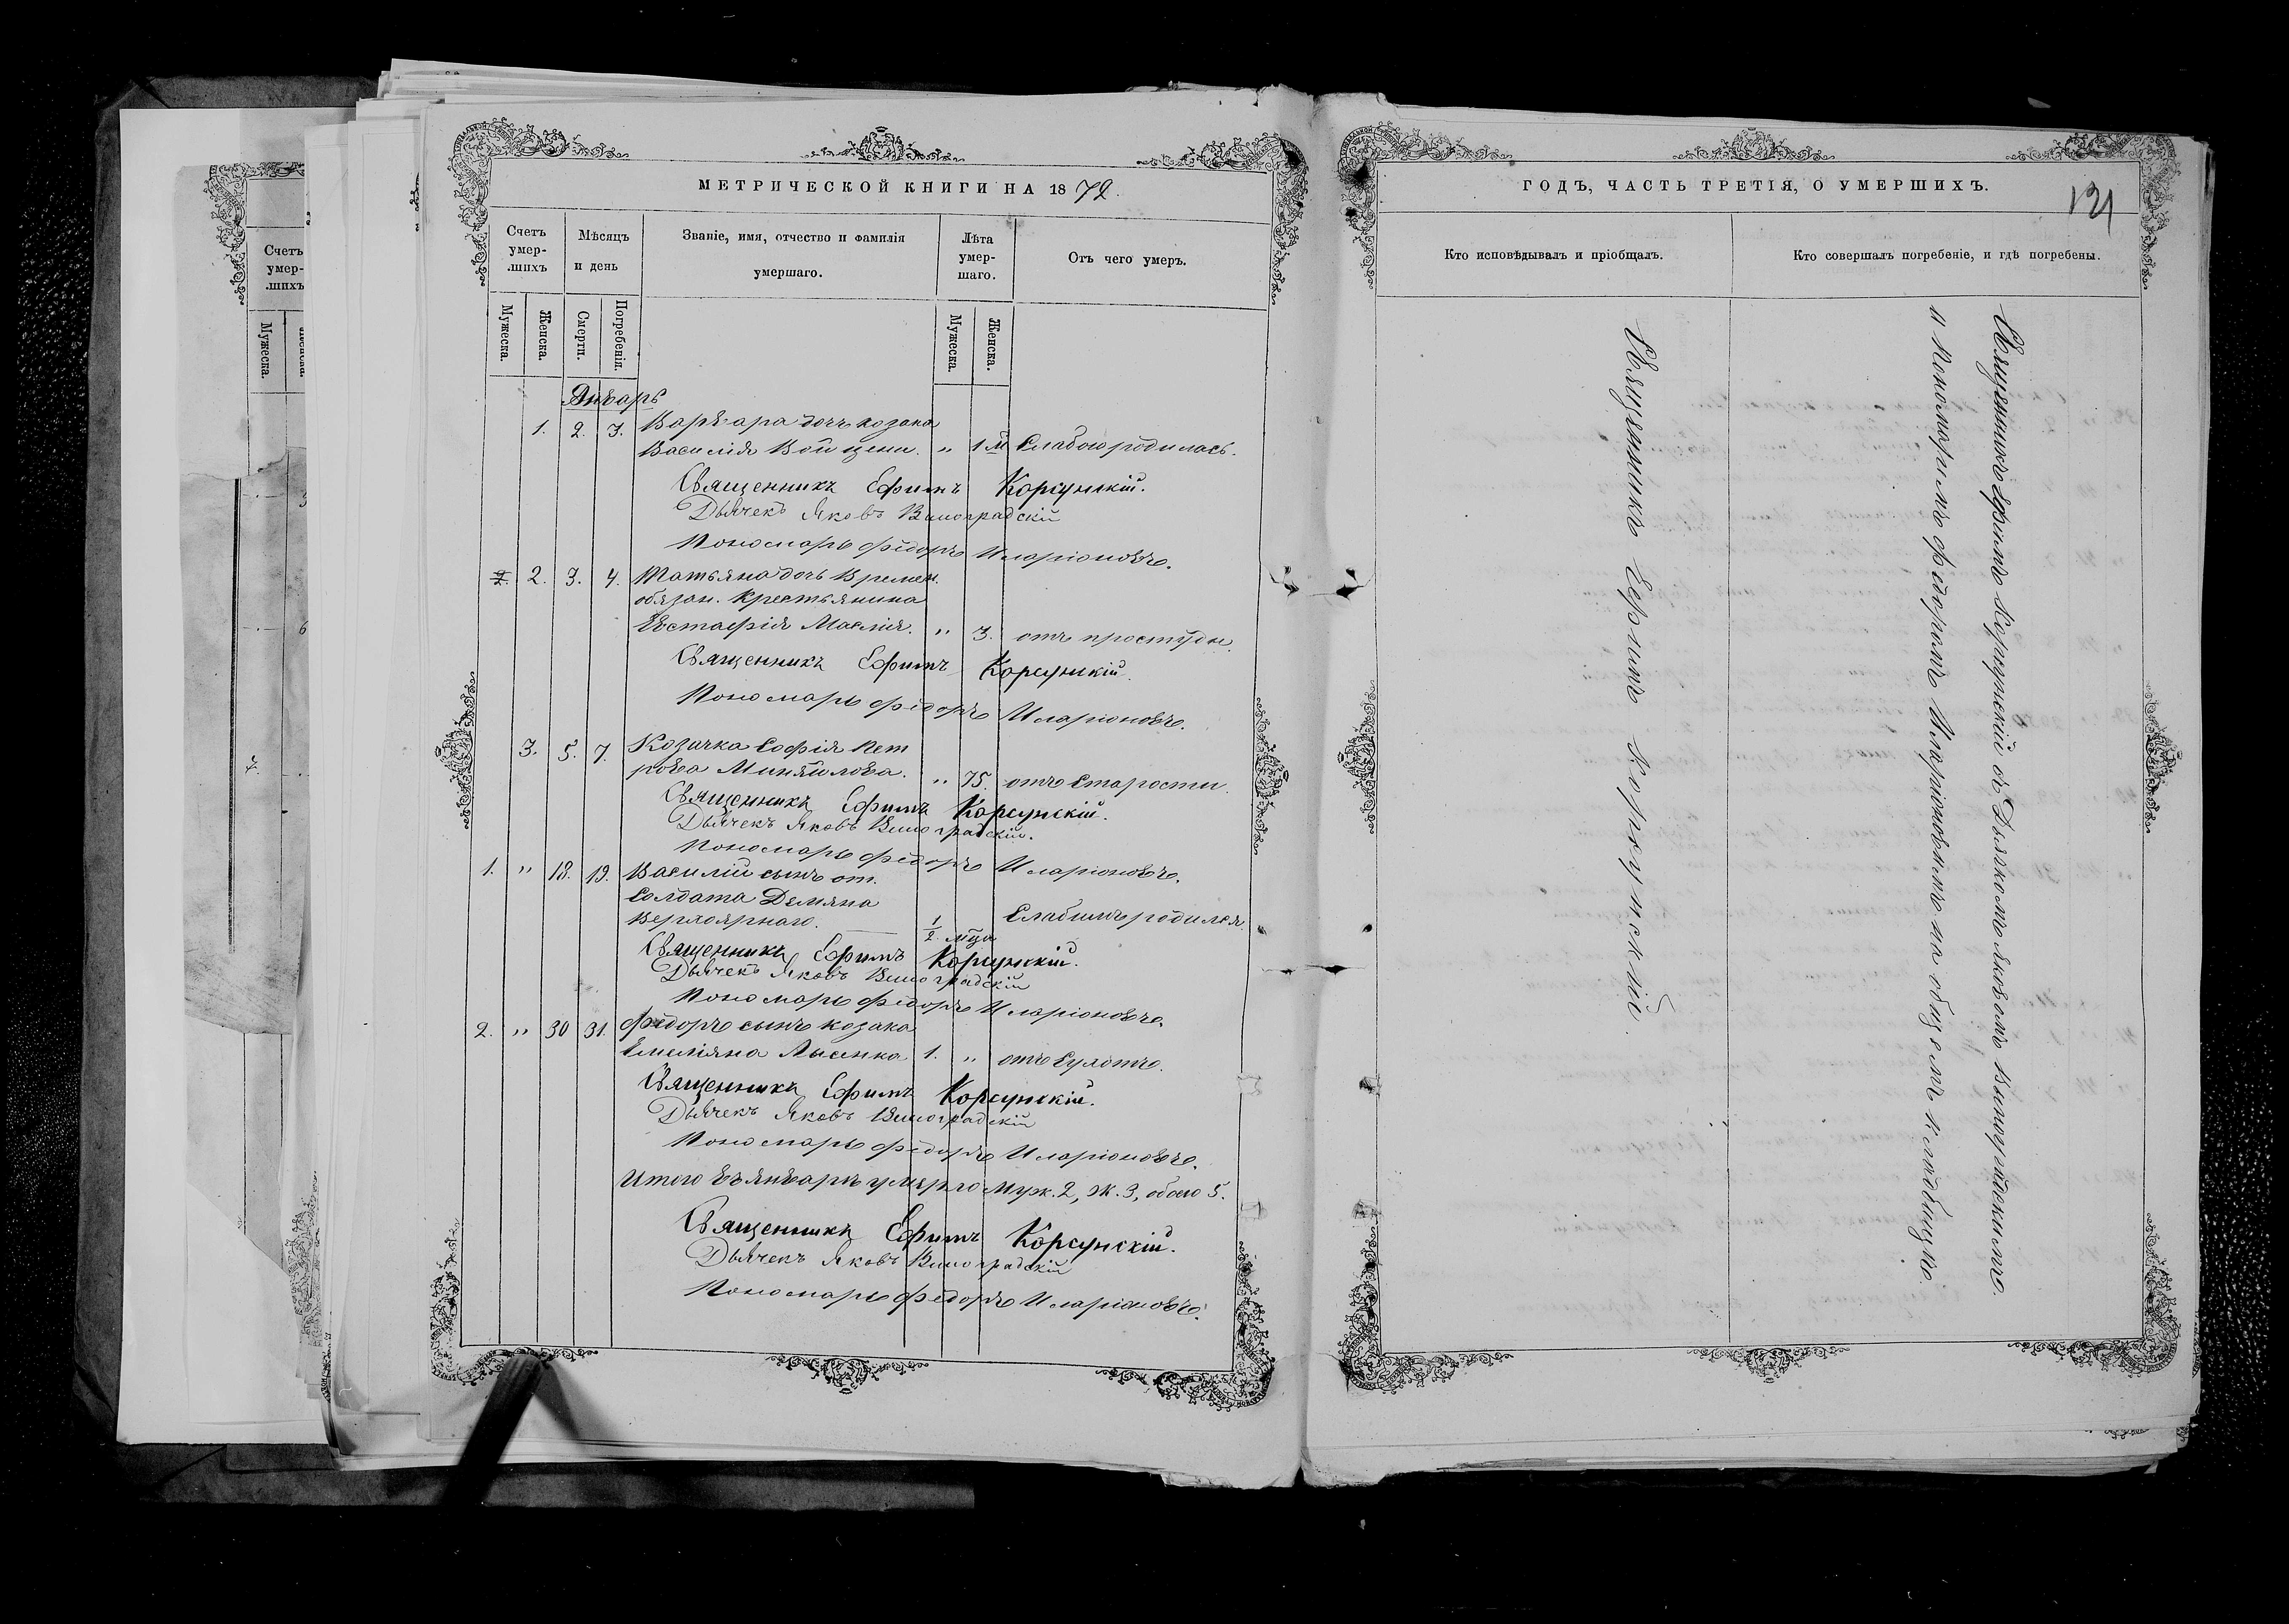 МЕТРИЧЕСКОЙ КНИГИ НА 1872.
Счетъ умер-шихъ
Мѣсяцъ и день
Званіе, имя, отчество и фамилія умершаго.
Лѣта умер-шаго.
Отъ чего умеръ.
Мужеска.
Женска.
Смерти.
Погребенія.
Мужеска.
Женска.
Январь
1. 2. 3. Варвара дочь козака
Василія Войцени. " 1 м Слабою родилась.
Священникъ Ефимъ Корсунскій.
Дьячекъ Яковъ Виноградскій
Пономарь Ѳедоръ Иларіоновъ.
2. 2. 3. 4. Татьяна дочь Времен.
обязан. Крестьянина
Евстафія Маслія. " 3. отъ простуды.
Священникъ Ефимъ Корсунскій.
Пономарь Ѳедоръ Иларіоновъ.
3. 5. 7. Козачка Софія Пет
рова Миняйлова. " 75. отъ Старости.
Священникъ Ефимъ Корсунскій.
Дьячекъ Яковъ Виноградскій.
Пономарь Ѳедоръ Иларіоновъ.
1. " 18. 19. Василій сынъ от.
Солдата Демяна
½ мца Слабимъ родился.
Священникъ Ефимъ Корсунскій.
Дьячекъ Яковъ Виноградскій
Пономарь Ѳедоръ Иларіоновъ.
2. " 30 31. Ѳедоръ сынъ козака
Емеліяна Лысенка 1. " отъ Сухотъ.
Священникъ Ефимъ Корсунскій.
Дьячекъ Яковъ Виноградскій
Пономарь Ѳедоръ Иларіоновъ.
Итого въ январѣ умерло муж. 2, ж. 3, обоего 5.
Священникъ Ефимъ Корсунскій.
Дьячекъ Яковъ Виноградскій
Пономарь Ѳедоръ Иларіоновъ.
ГОДЪ, ЧАСТЬ ТРЕТІЯ, О УМЕРШИХЪ.
121
Кто исповѣдывалъ и пріобщалъ.
Кто совершалъ погребеніе, и гдѣ погребены.
Священникъ Ефимъ Корсунскій.
Священникъ Ефимъ Корсунскій съ Дьячкомъ Яковомъ Виноградскимъ
и Пономаремъ Ѳедоромъ Иларіоновымъ на общемъ кладбищѣ.
Счетъ умер-шихъ
Мужеска.